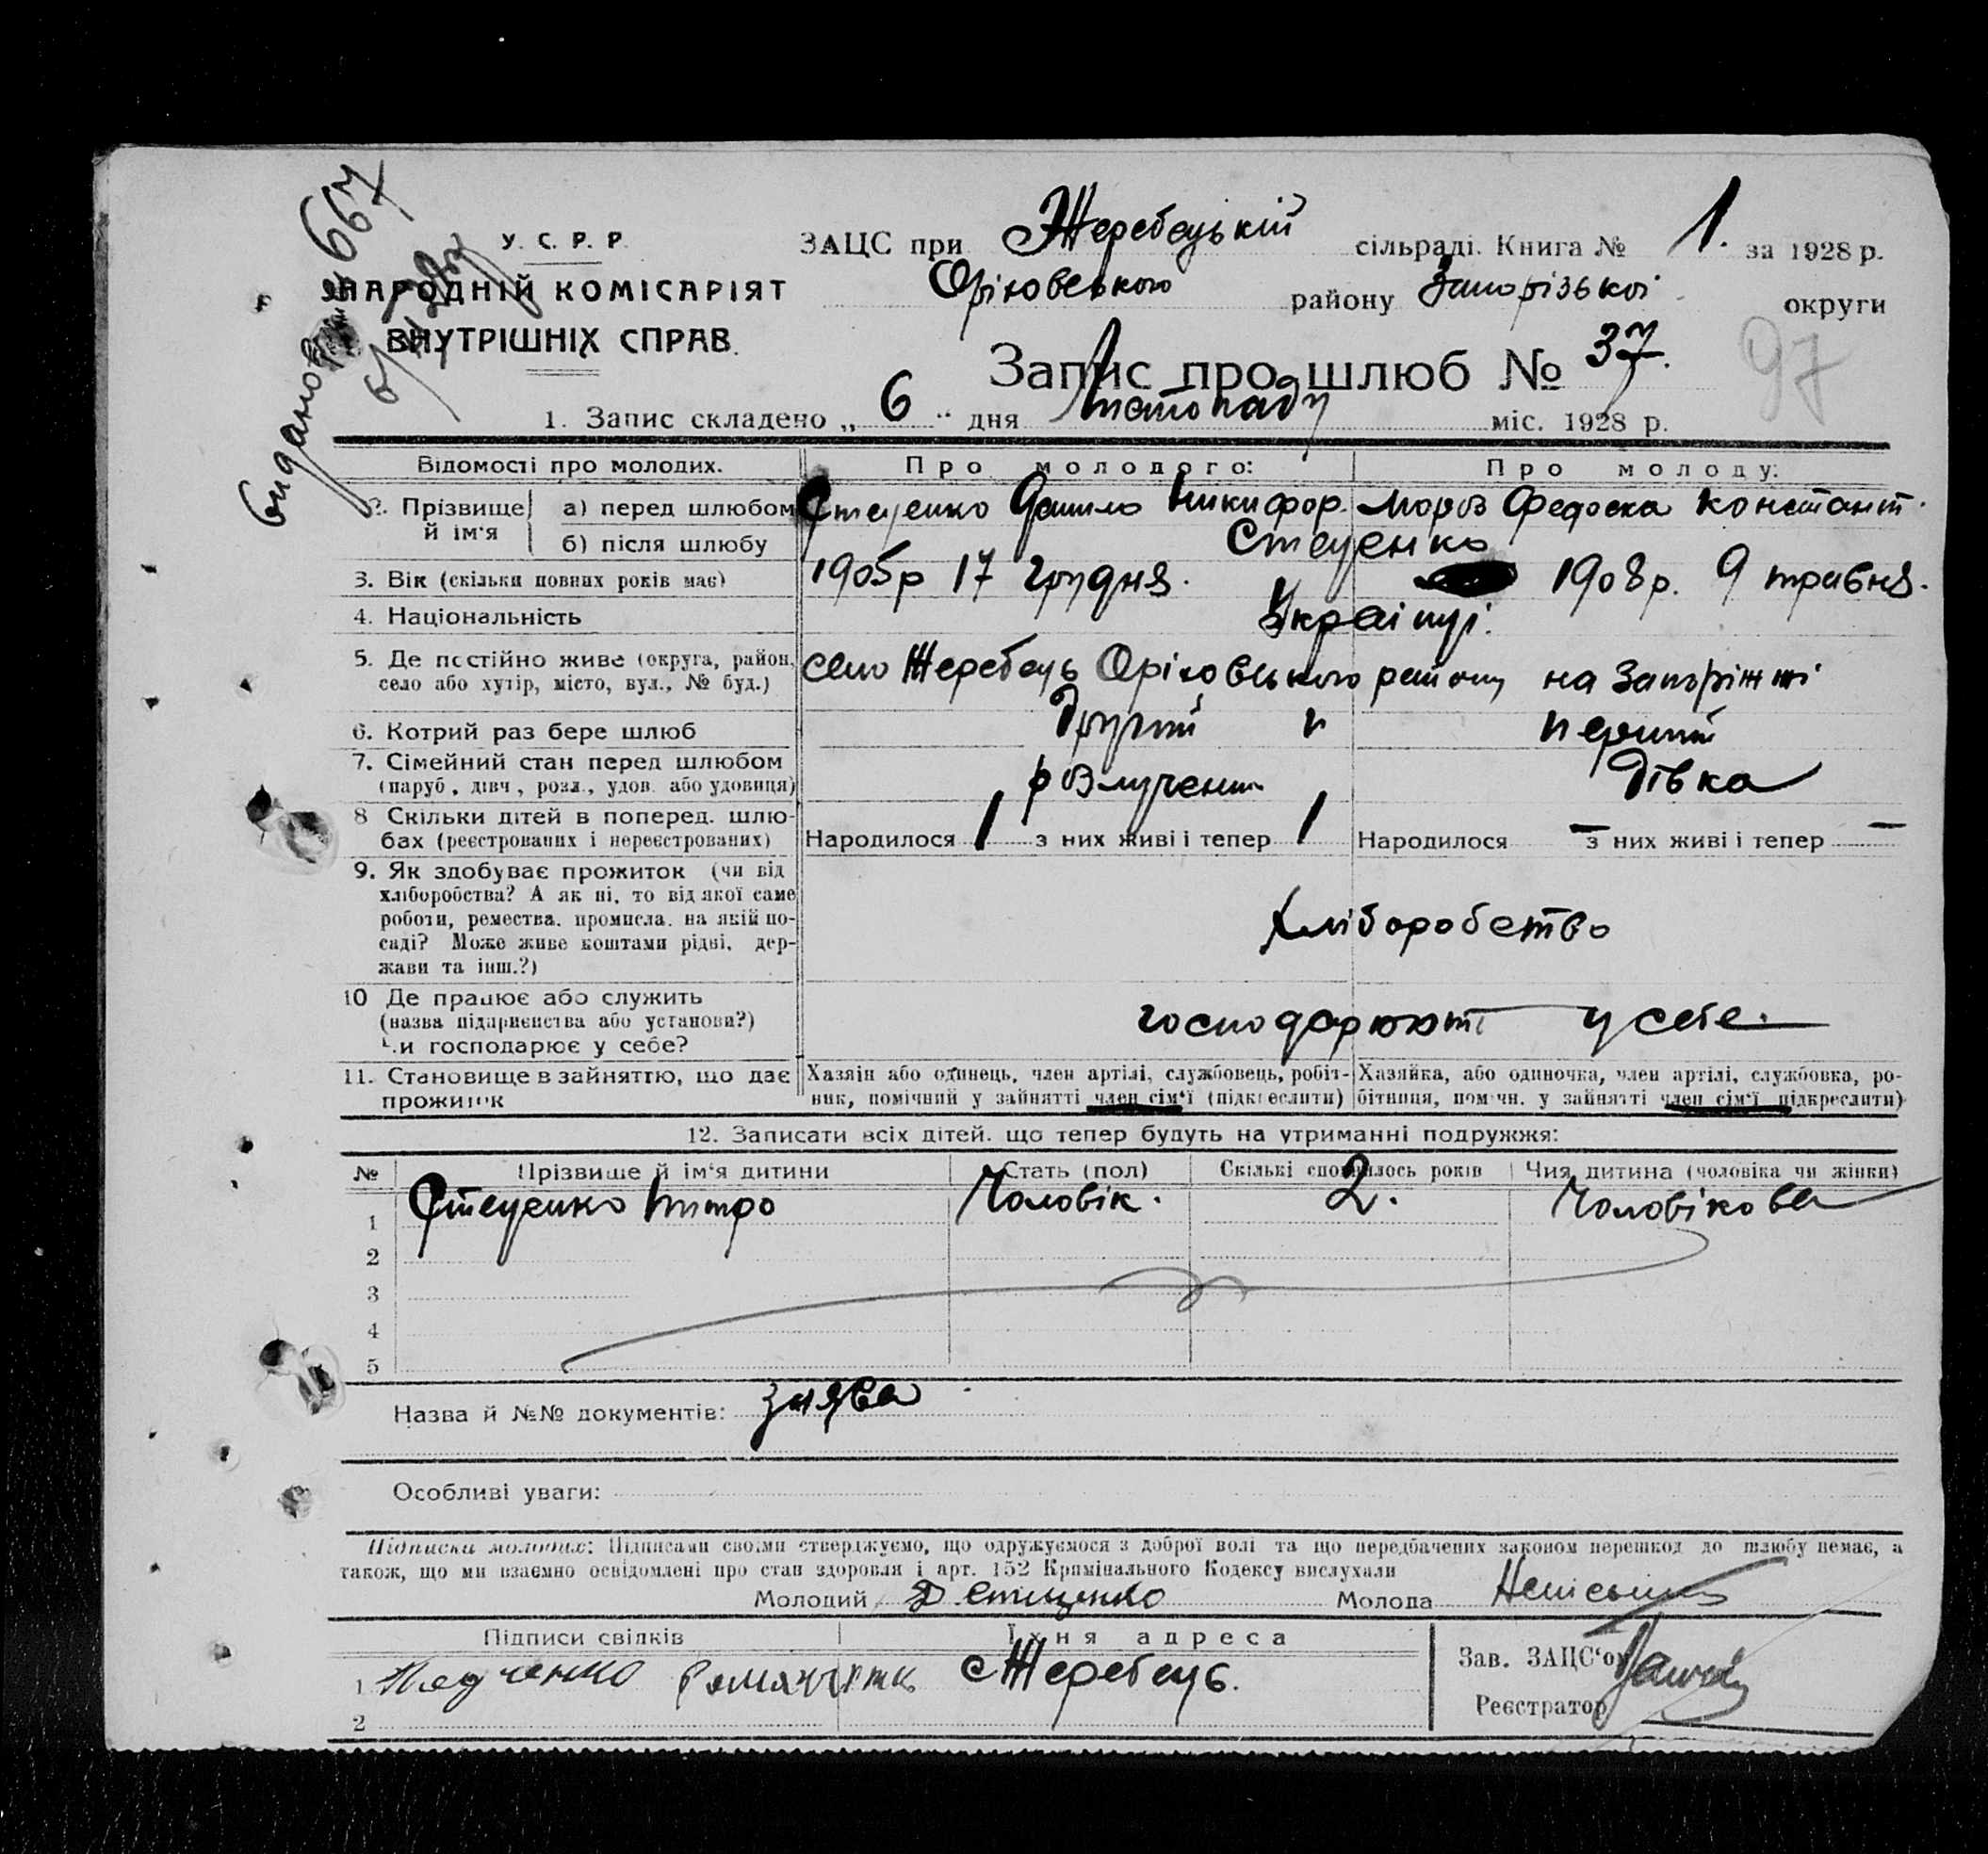 видано
№ 667
У. С. Р. Р.
НАРОДНІЙ КОМІСАРІЯТ
ВНУТРІШНІХ СПРАВ.
ЗАЦС при Жеребецькій сільраді. Книга № 1. за 1928 р.
Оріховського району Запорізької округи
Запис про шлюб № 37.
97
1. Запис складено „ 6 “ дня листопаду міс. 1928 р.
Відомості про молодих. Про молодого: Про молоду:
2. Прізвище й ім'я а) перед шлюбом Стеценко Данило Никифор. Мороз Федоска Констант.
б) після шлюбу Стеценко
3. Вік (скільки повних років має) 1905р 17 грудня. 1908р. 9 травня.
4. Національність Україпці.
5. Де постійно живе (округа, район, село Жеребець Оріховського району на Запоріжжі
село або хутір, місто, вул., № буд.)
6. Котрий раз бере шлюб Другий перший
7. Сімейний стан перед шлюбом розлучений Дівка
(паруб., дівч., розл., удов. або удовиця)
8 Скільки дітей в поперед. шлю-
бах (реєстрованих і нереєстрованих) Народилося 1 з них живі і тепер 1 Народилося – з них живі і тепер –
9. Як здобуває прожиток (чи від
хліборобства? А як ні, то від якої саме
роботи, ремества, промисла, на якій по-
саді? Може живе коштами рідні, дер-
жави та інш.?) Хліборобство
10 Де працює або служить
(назва підприємства або установи?) господарюют у себе.
Чи господарює у себе?
11. Становище в зайняттю, що дає Хазяїн або одинець, член артілі, службовець, робіт- Хазяйка, або одиночка, член артілі, службовка, ро-
прожиток ник, помічний у зайнятті член сім'ї (підкреслити) бітниця, помічн. у зайнятті член сім'ї підкреслити)
12. Записати всіх дітей, що тепер будуть на утриманні подружжя:
№ Прізвище й ім'я дитини Стать (пол) Скількі сповнилось років Чия дитина (чоловіка чи жінки)
1 Стеценко Чоловік. 2. Чоловікова
2
3
4
5
Назва й №№ документів: заява
Особливі уваги:
Підписки молодих: Підписами своїми стверджуємо, що одружуємося з доброї волі та що передбачених законом перешкод до шлюбу немає, а
також, що ми взаємно освідомлені про стан здоровля і арт. 152 Крпмінального Кодексу вислухали
Молодий Д. Стеценко Молода
Підписи свідків Їхня адреса
Зав. ЗАЦС'ом
1 с Жеребець.
Реєстратор
2